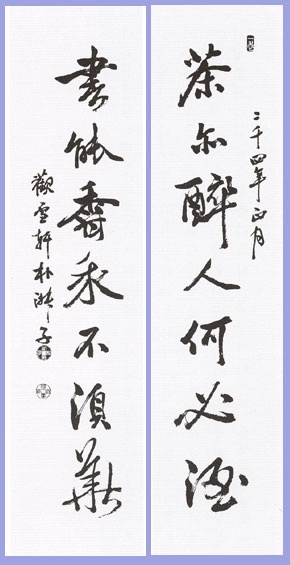 二千四年正月
茶亦醉人何必酒
書能香我不須華
觀雪軒朴